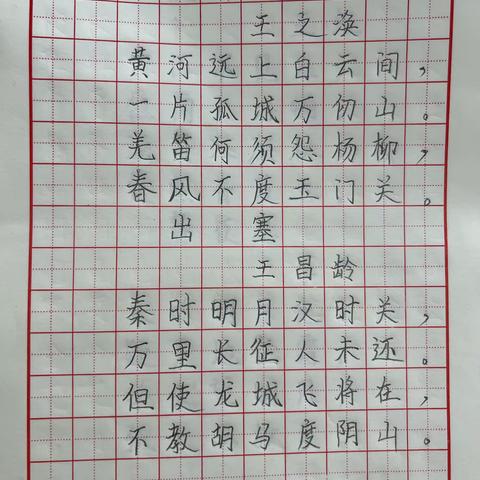 王之涣
黄河远上白云间，
一片孤城万仞山。
羌笛何须怨杨柳，
春风不度玉门关。
出塞
王昌龄
秦时明月汉时关，
万里长征人未还。
但使龙城飞将在，
不教胡马度阴山。